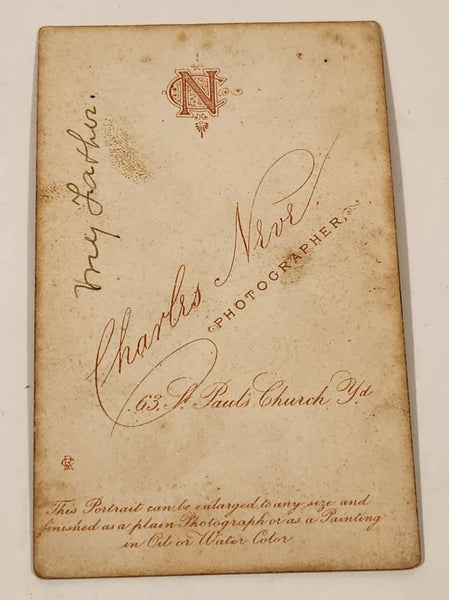 CN
My Father.
Charles Neve
PHOTOGRAPHER,
63, St Paul's Church Yd
This Portrait can be enlarged to any size and
finished as a plain Photograph or as a Painting
in Oil or Water Color